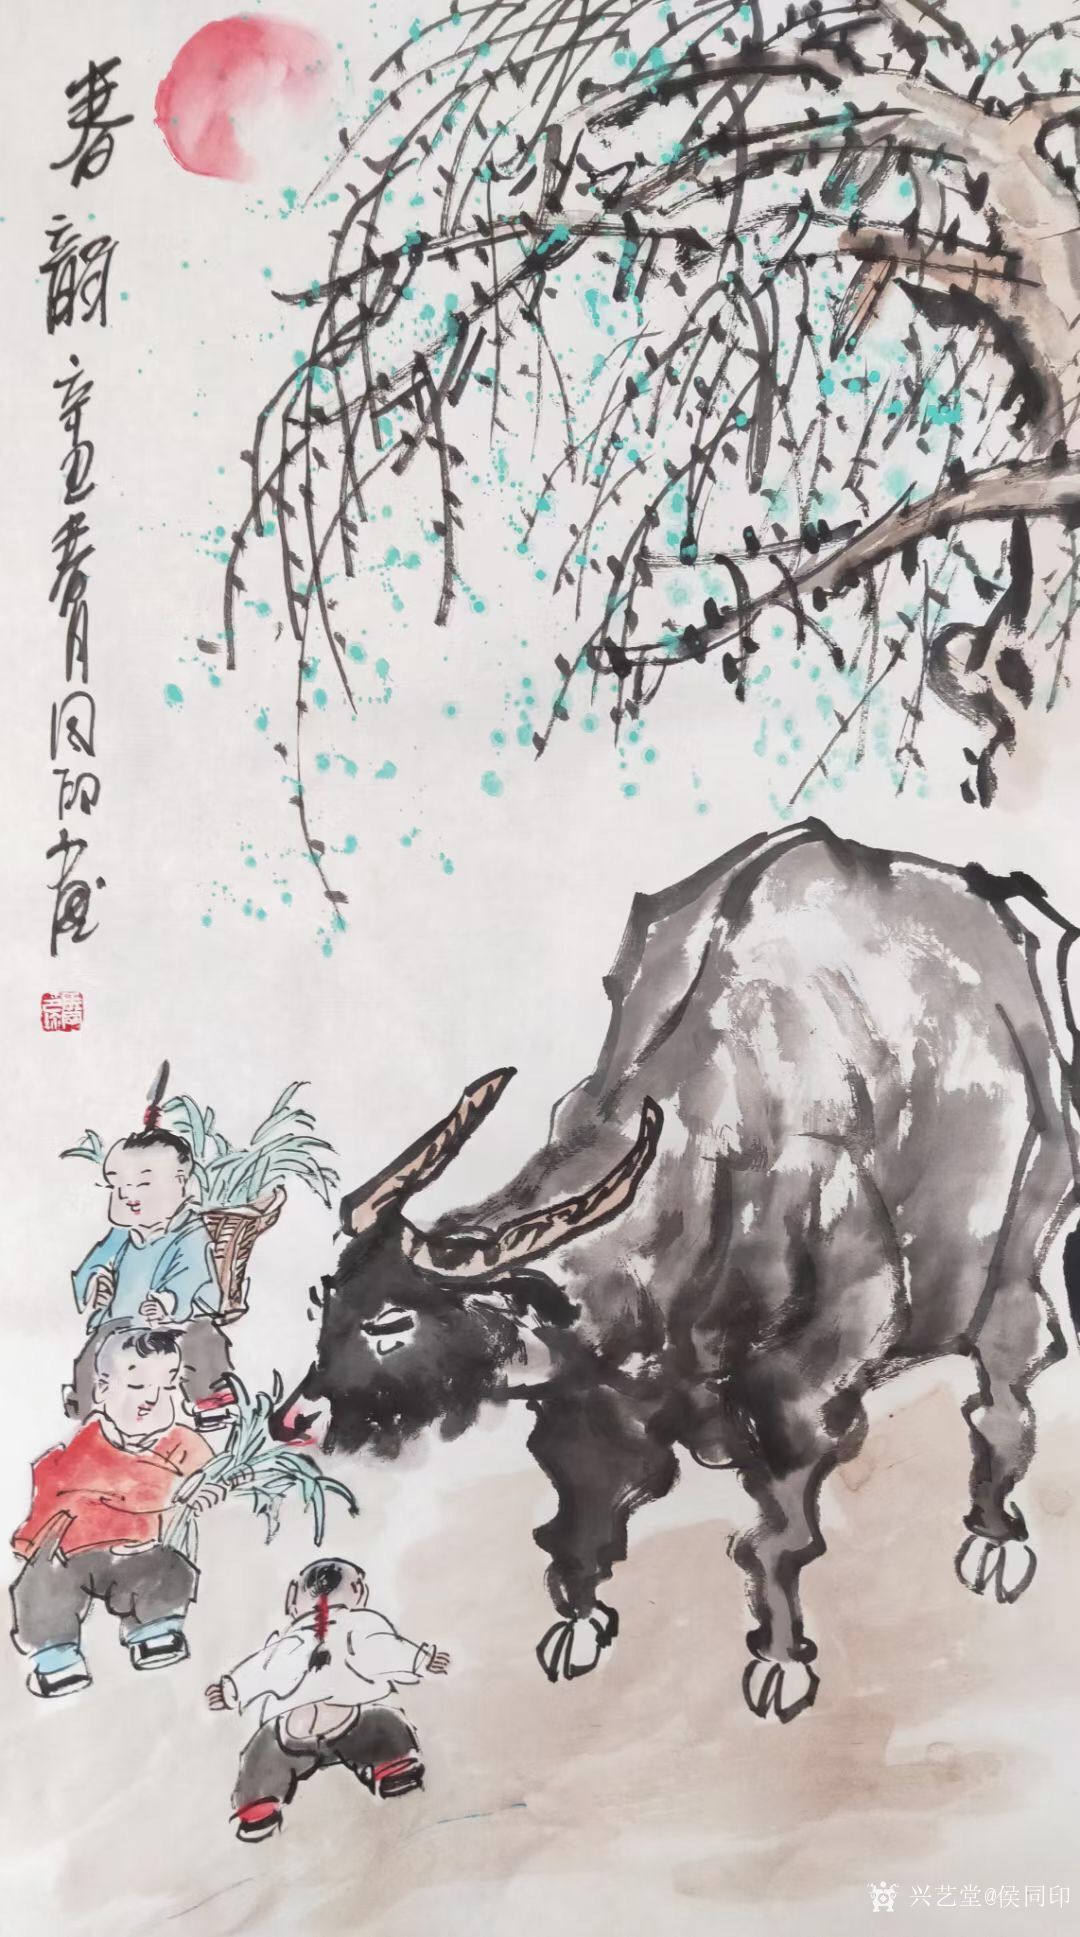 春韻 辛丑春月同印画
兴艺堂@侯同印